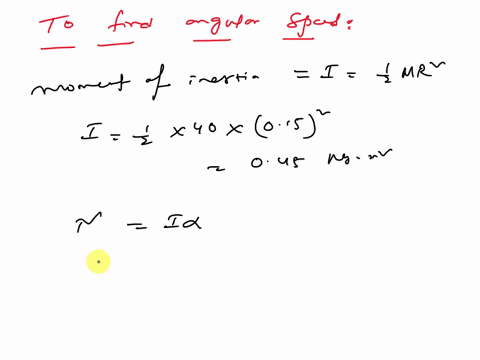 To find angular speed:
moment of inertia = I = 1/2 MR²
I = 1/2 × 40 × (0.15)²
= 0.45 kg·m²
τ = Iα